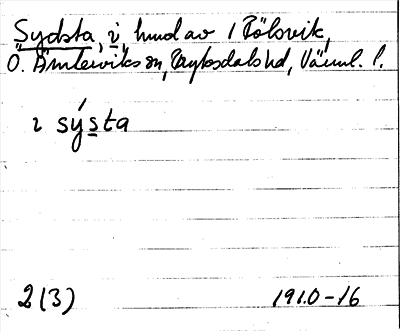 Sydsta, i, hmd av 1 Bölsvik,
Ö. Ämterviks sn, Fryksdals hd, Värml. l.
i sýsta
2(3) 1910-16